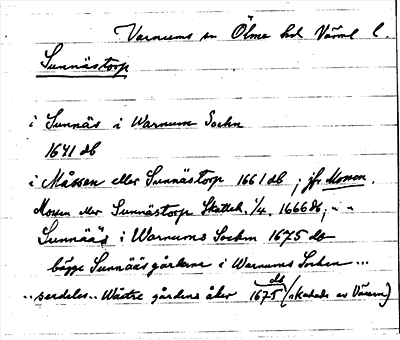 Varnums sn Ölme hd Värml l.
Sunnästorp
i Sunnäs i Warnum Sochn
1641 db
i Måssen eller Sunnästorp 1661 db ; jfr Mossen.
Mossen eller Sunnästorp Skatteh. 1/4. 1666 db, „ „
Sunnääs i Warnums Sochn 1675 db
bägge Sunnääs gårdarne i Warnums Sochen ...
..serdeles.. Wästre gårdens åker 1675 db (skadade av Vänern)